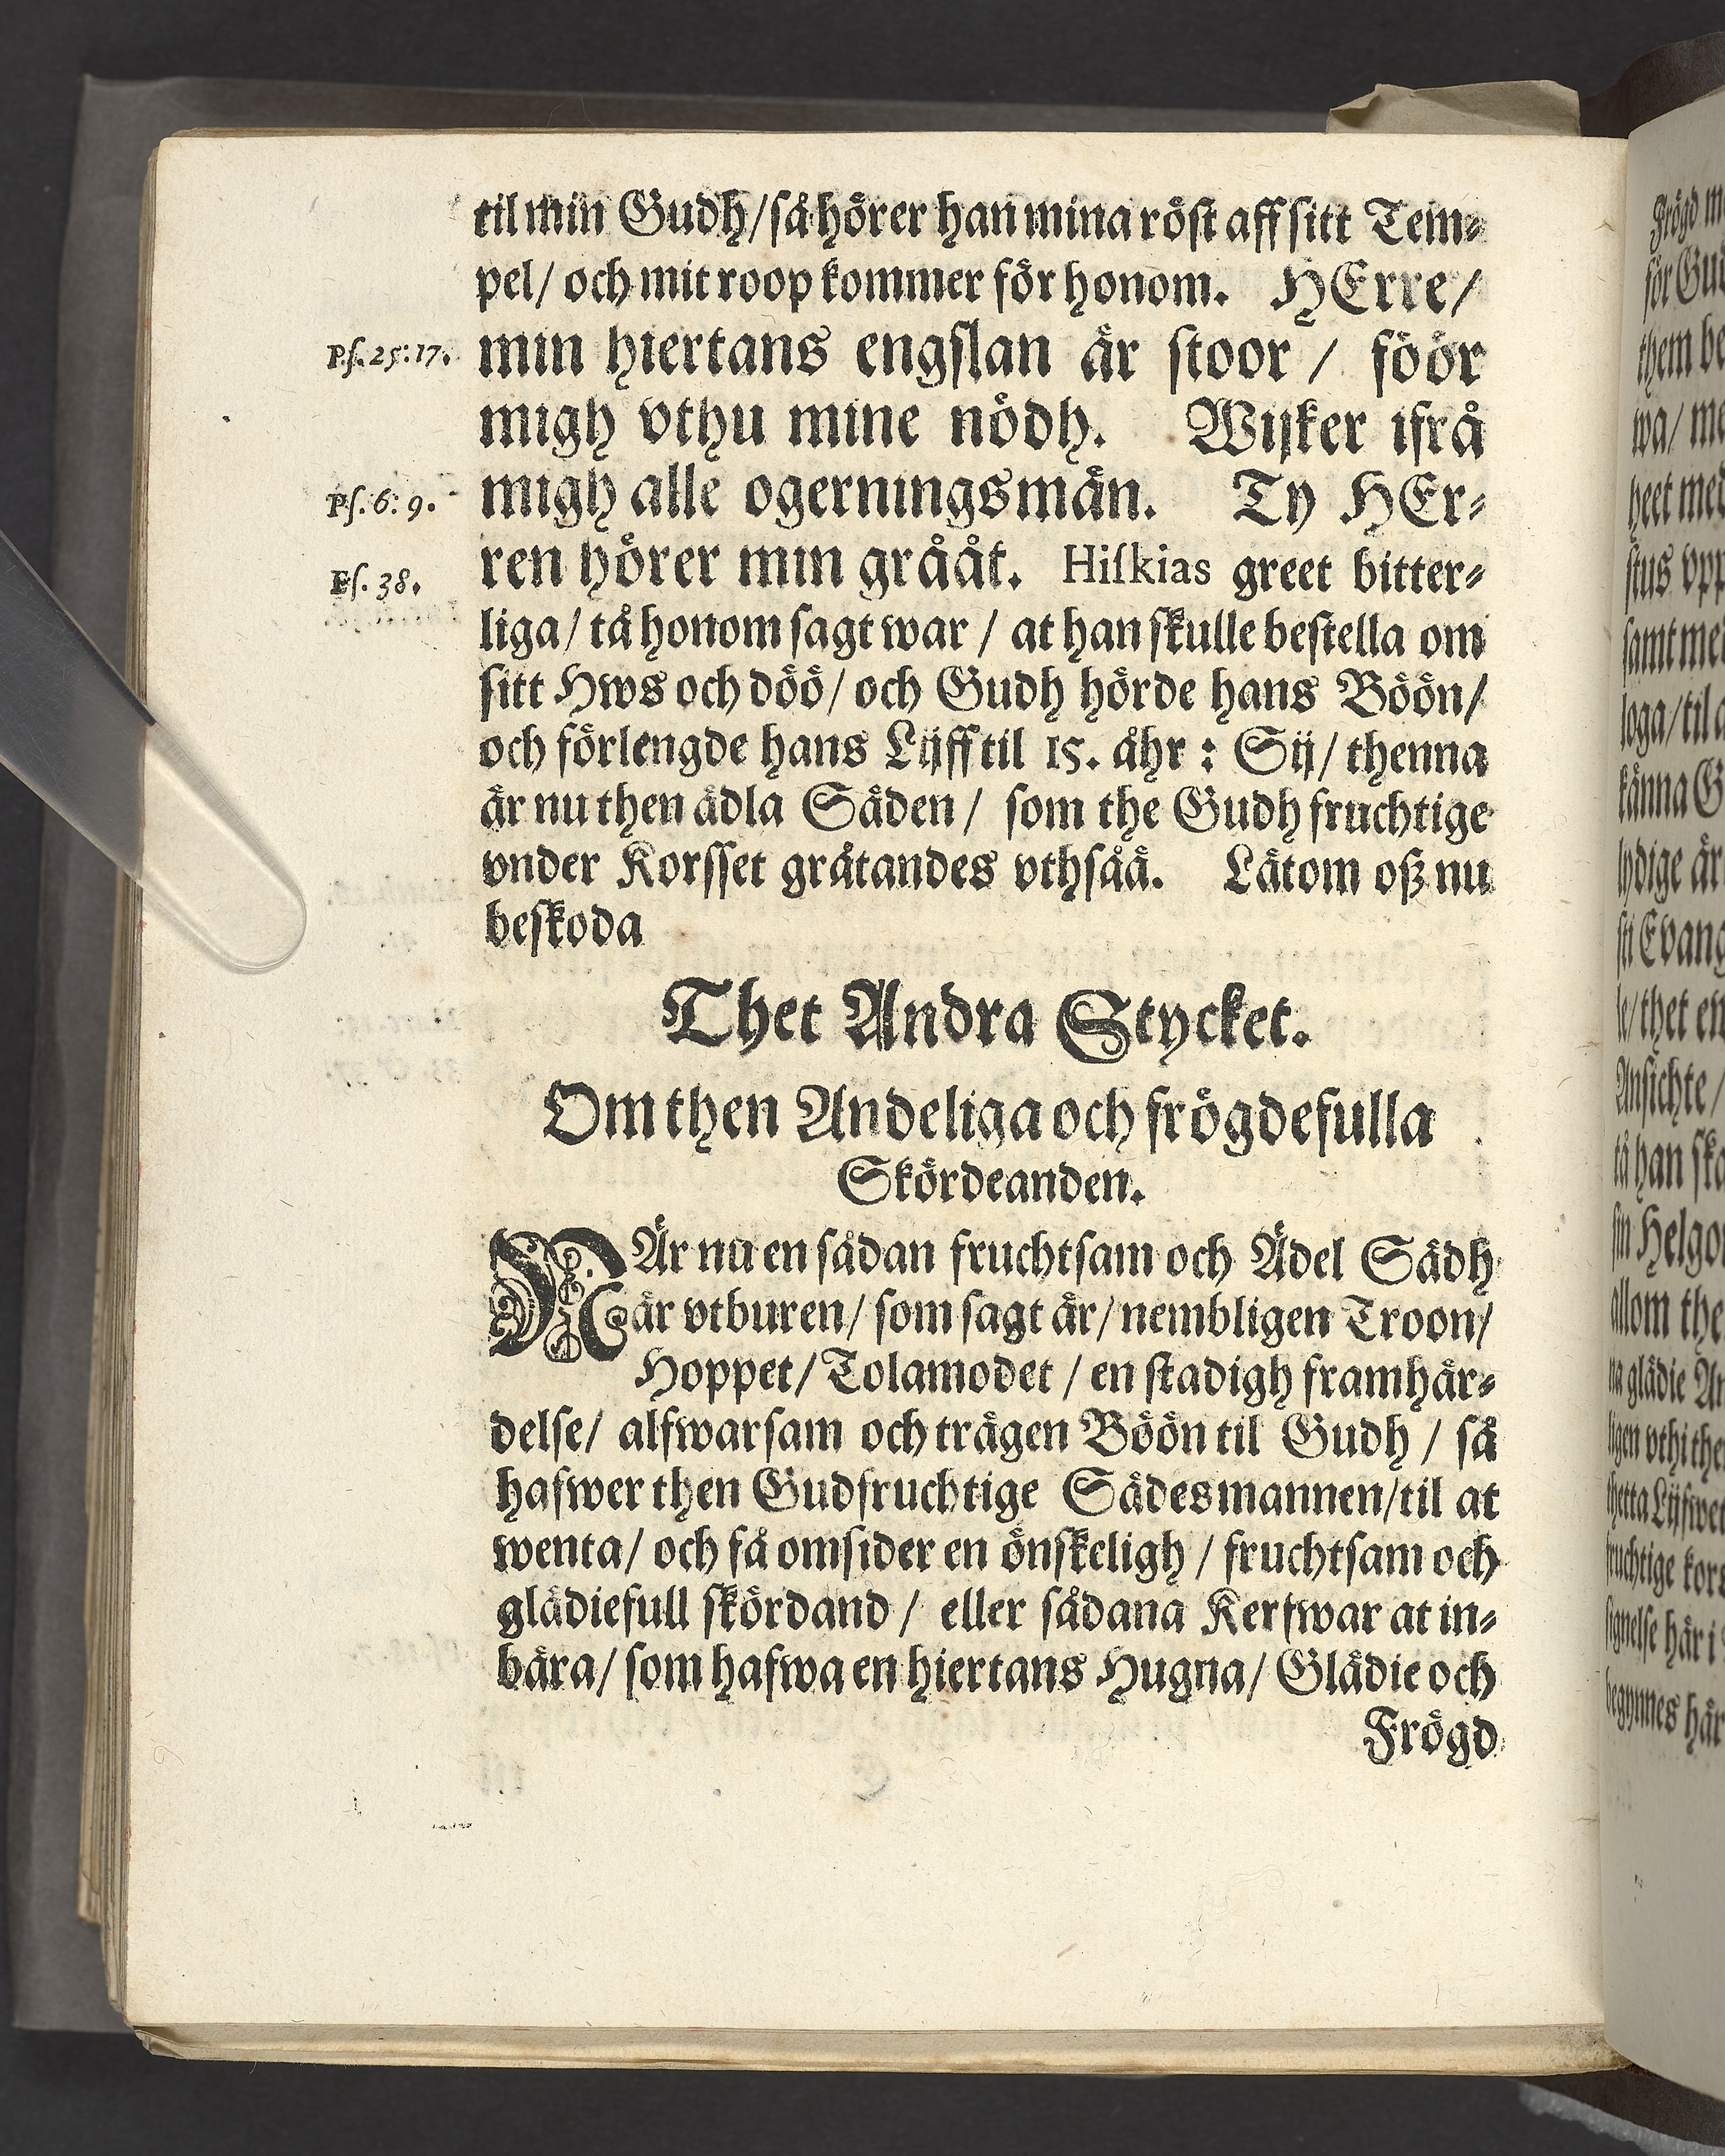 til min Gudh/ så hörer han mina röst aff sitt Tem-
pel/ och mit roop kommer för honom. HErre/
Ps. 25:17. min hiertans engslan är stoor / föör
migh vthu mine nödh. Wijker ifrå
Ps. 6: 9. migh alle ogerningsmän. Ty HEr-
ren hörer min grååt. Hiskias greet bitter-
Es. 38.
liga/ tå honom sagt war / at han skulle bestella om
sitt Hws och döö/ och Gudh hörde hans Böön/
och förlengde hans Lijff til 15. åhr : Sij/ thenna
är nu then ädla Säden/ som the Gudh fruchtige
vnder Korsset gråtandes vthsåå. Låtom oß nu
beskoda
Thet Andra Stycket.
Om then Andeliga och frögdefulla
Skördeanden.
NÄr nu en sådan fruchtsam och Ädel Sädh
är vtburen/ som sagt är/ nembligen Troon/
Hoppet/ Tolamodet / en stadigh framhär-
delse/ alfwarsam och trägen Böön til Gudh / så
hafwer then Gudfruchtige Sädesmannen/ til at
wenta/ och få omsider en önskeligh / fruchtsam och
glädiefull skördand / eller sådana Kerfwar at in-
bära/ som hafwa en hiertans Hugna/ Glädie och
Frögd